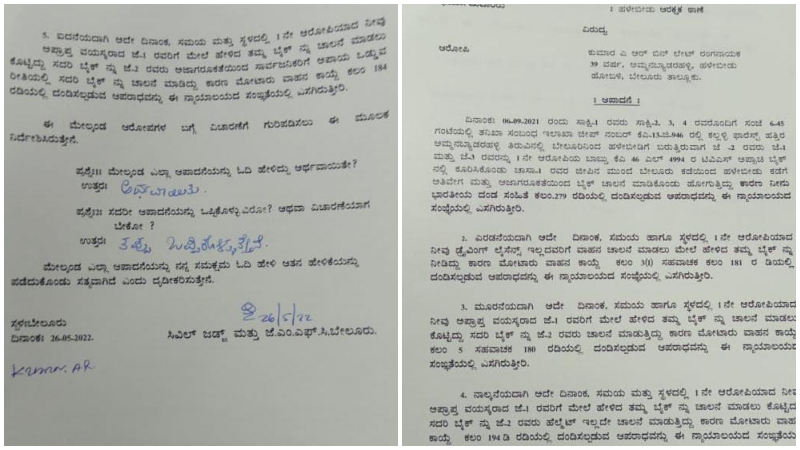 5. ಐದನೆಯದಾಗಿ ಅದೇ ದಿನಾಂಕ, ಸಮಯ ಮತ್ತು ಸ್ಥಳದಲ್ಲಿ 1 ನೇ ಆರೋಪಿಯಾದ ನೀವು
ಅಪ್ರಾಪ್ತ ವಯಸ್ಕರಾದ ಜೆ-1 ರವರಿಗೆ ಮೇಲೆ ಹೇಳಿದ ತಮ್ಮ ಬೈಕ್ ನ್ನು ಚಾಲನೆ ಮಾಡಲು
ಕೊಟ್ಟಿದ್ದು ಸದರಿ ಬೈಕ್ ನ್ನು ಜೆ-2 ರವರು ಅಜಾಗರೂಕತೆಯಿಂದ ಸಾರ್ವಜನಿಕರಿಗೆ ಅಪಾಯ ಒಡ್ಡುವ
ರೀತಿಯಲ್ಲಿ ಸದರಿ ಬೈಕ್ ನ್ನು ಚಾಲನೆ ಮಾಡಿದ್ದು ಕಾರಣ ಮೋಟಾರು ವಾಹನ ಕಾಯ್ದೆ ಕಲಂ 184
ರಡಿಯಲ್ಲಿ ದಂಡಿಸಲ್ಪಡುವ ಅಪರಾಧವನ್ನು ಈ ನ್ಯಾಯಾಲಯದ ಸಂಜ್ಞೆಯಲ್ಲಿ ಎಸಗಿರುತ್ತೀರಿ.
ಈ ಮೇಲ್ಕಂಡ ಆರೋಪಗಳ ಬಗ್ಗೆ ವಿಚಾರಣೆಗೆ ಗುರಿಪಡಿಸಲು ಈ ಮೂಲಕ
ನಿರ್ದೇಶಿಸಿರುತ್ತೇನೆ.
ಪ್ರಶ್ನೆ:1: ಮೇಲ್ಕಂಡ ಎಲ್ಲಾ ಆಪಾದನೆಯನ್ನು ಓದಿ ಹೇಳಿದ್ದು ಅರ್ಥವಾಯಿತೇ?
ಉತ್ತರ: ಅರ್ಥವಾಯಿತು.
ಪ್ರಶ್ನೆ:2: ಸದರೀ ಆಪಾದನೆಯನ್ನು ಒಪ್ಪಿಕೊಳ್ಳುವಿರೋ? ಅಥವಾ ವಿಚಾರಣೆಯಾಗ
ಬೇಕೋ ?
ಉತ್ತರ: ತಪ್ಪು ಒಪ್ಪಿಕೊಳ್ಳುತ್ತೇನೆ.
ಮೇಲ್ಕಂಡ ಎಲ್ಲಾ ಆಪಾದನೆಯನ್ನು ನನ್ನ ಸಮಕ್ಷಮ ಓದಿ ಹೇಳಿ ಆತನ ಹೇಳಿಕೆಯನ್ನು
ಪಡೆದುಕೊಂಡು ಸತ್ಯವಾಗಿದೆ ಎಂದು ದೃಢೀಕರಿಸುತ್ತೇನೆ.
26/5/22
ಸ್ಥಳ:ಬೇಲೂರು
ದಿನಾಂಕ: 26-05-2022.
ಸಿವಿಲ್ ಜಡ್ಜ್ ಮತ್ತು ಜೆ.ಎಂ.ಎಫ್.ಸಿ.ಬೇಲೂರು.
Kumar. AR
: ಹಳೇಬೀಡು ಆರಕ್ಷಕ ಠಾಣೆ
ವಿರುದ್ಧ
ಆರೋಪಿ
ಕುಮಾರ ಎ ಆರ್ ಬಿನ್ ಲೇಟ್ ರಂಗನಾಯಕ
39 ವರ್ಷ, ಅಮ್ಮನಬ್ಯಾಡರಹಳ್ಳಿ, ಹಳೇಬೀಡು
ಹೋಬಳಿ, ಬೇಲೂರು ತಾಲ್ಲೂಕು.
: ಆಪಾದನೆ :
ದಿನಾಂಕ: 06.09.2021 ರಂದು ಸಾಕ್ಷಿ-1 ರವರು ಸಾಕ್ಷಿ-2, 3, 4 ರವರೊಂದಿಗೆ ಸಂಜೆ 6-45
ಗಂಟೆಯಲ್ಲಿ ತನಿಖಾ ಸಂಬಂಧ ಇಲಾಖಾ ಜೀಪ್ ನಂಬರ್ ಕೆಎ-13-ಜಿ-946 ರಲ್ಲಿ ಕಲ್ಲಳ್ಳಿ ಫಾರೆಸ್ಟ್ ಹತ್ತಿರ
ಅಮ್ಮನಬ್ಯಾಡರಹಳ್ಳಿ ತಿರುವಿನಲ್ಲಿ ಬೇಲೂರಿನಿಂದ ಹಳೇಬೀಡಿಗೆ ಬರುತ್ತಿರುವಾಗ ಜೆ -2 ರವರು ಜೆ-1
ಮತ್ತು ಜೆ-3 ರವರನ್ನು 1 ನೇ ಆರೋಪಿಯ ಬಾಬ್ತು ಕೆಎ 46 ಎಲ್ 4994 ರ ಟಿವಿಎಸ್ ಅಪ್ಪಾಚಿ ಬೈಕ್
ನಲ್ಲಿ ಕೂರಿಸಿಕೊಂಡು ಚಾಸಾ-1 ರವರ ಜೀಪಿನ ಮುಂದೆ ಬೇಲೂರು ಕಡೆಯಿಂದ ಹಳೇಬೀಡು ಕಡೆಗೆ
ಅತಿವೇಗ ಮತ್ತು ಅಜಾಗರೂಕತೆಯಿಂದ ಬೈಕ್ ಚಾಲನೆ ಮಾಡಿಕೊಂಡು ಹೋಗುತ್ತಿದ್ದು ಕಾರಣ ನೀನು
ಭಾರತೀಯ ದಂಡ ಸಂಹಿತೆ ಕಲಂ.279 ರಡಿಯಲ್ಲಿ ದಂಡಿಸಲ್ಪಡುವ ಅಪರಾಧವನ್ನು ಈ ನ್ಯಾಯಾಲಯದ
ಸಂಜ್ಞೆಯಲ್ಲಿ ಎಸಗಿರುತ್ತೀರಿ.
2. ಎರಡನೆಯದಾಗಿ ಅದೇ ದಿನಾಂಕ, ಸಮಯ ಹಾಗೂ ಸ್ಥಳದಲ್ಲಿ 1 ನೇ ಆರೋಪಿಯಾದ
ನೀವು ಡ್ರೈವಿಂಗ್ ಲೈಸೆನ್ಸ್ ಇಲ್ಲದವರಿಗೆ ವಾಹನ ಚಾಲನೆ ಮಾಡಲು ಮೇಲೆ ಹೇಳಿದ ತಮ್ಮ ಬೈಕ್ ನ್ನು
ನೀಡಿದ್ದು ಕಾರಣ ಮೋಟಾರು ವಾಹನ ಕಾಯ್ದೆ ಕಲಂ 3(1) ಸಹವಾಚಕ ಕಲಂ 181 ರ ಡಿಯಲ್ಲಿ
ದಂಡಿಸಲ್ಪಡುವ ಅಪರಾಧವನ್ನು ಈ ನ್ಯಾಯಾಲಯದ ಸಂಜ್ಞೆಯಲ್ಲಿ ಎಸಗಿರುತ್ತೀರಿ.
3. ಮೂರನೆಯದಾಗಿ ಅದೇ ದಿನಾಂಕ, ಸಮಯ ಹಾಗೂ ಸ್ಥಳದಲ್ಲಿ 1 ನೇ ಆರೋಪಿಯಾದ
ನೀವು ಅಪ್ರಾಪ್ತ ವಯಸ್ಕರಾದ ಜೆ-1 ರವರಿಗೆ ಮೇಲೆ ಹೇಳಿದ ತಮ್ಮ ಬೈಕ್ ನ್ನು ಚಾಲನೆ ಮಾಡಲು
ಕೊಟ್ಟಿದ್ದು ಸದರಿ ಬೈಕ್ ನ್ನು ಜೆ-2 ರವರು ಚಾಲನೆ ಮಾಡುತ್ತಿದ್ದು ಕಾರಣ ಮೋಟಾರು ವಾಹನ ಕಾಯ್ದೆ
ಕಲಂ 5 ಸಹವಾಚಕ 180 ರಡಿಯಲ್ಲಿ ದಂಡಿಸಲ್ಪಡುವ ಅಪರಾಧವನ್ನು ಈ ನ್ಯಾಯಾಲಯದ
ಸಂಜ್ಞೆಯಲ್ಲಿ ಎಸಗಿರುತ್ತೀರಿ.
4. ನಾಲ್ಕನೆಯದಾಗಿ ಅದೇ ದಿನಾಂಕ, ಸಮಯ ಮತ್ತು ಸ್ಥಳದಲ್ಲಿ 1 ನೇ ಆರೋಪಿಯಾದ ನೀವು
ಅಪ್ರಾಪ್ತ ವಯಸ್ಕರಾದ ಜೆ-1 ರವರಿಗೆ ಮೇಲೆ ಹೇಳಿದ ತಮ್ಮ ಬೈಕ್ ನ್ನು ಚಾಲನೆ ಮಾಡಲು ಕೊಟ್ಟಿದ್ದು
ಸದರಿ ಬೈಕ್ ನ್ನು ಜೆ-2 ರವರು ಹೆಲ್ಮೆಟ್ ಇಲ್ಲದೇ ಚಾಲನೆ ಮಾಡುತ್ತಿದ್ದು ಕಾರಣ ಮೋಟಾರು ವಾಹನ
ಕಾಯ್ದೆ ಕಲಂ 194 ಡಿ ರಡಿಯಲ್ಲಿ ದಂಡಿಸಲ್ಪಡುವ ಅಪರಾಧವನ್ನು ಈ ನ್ಯಾಯಾಲಯದ ಸಂಜ್ಞೆಯಲ್ಲಿ